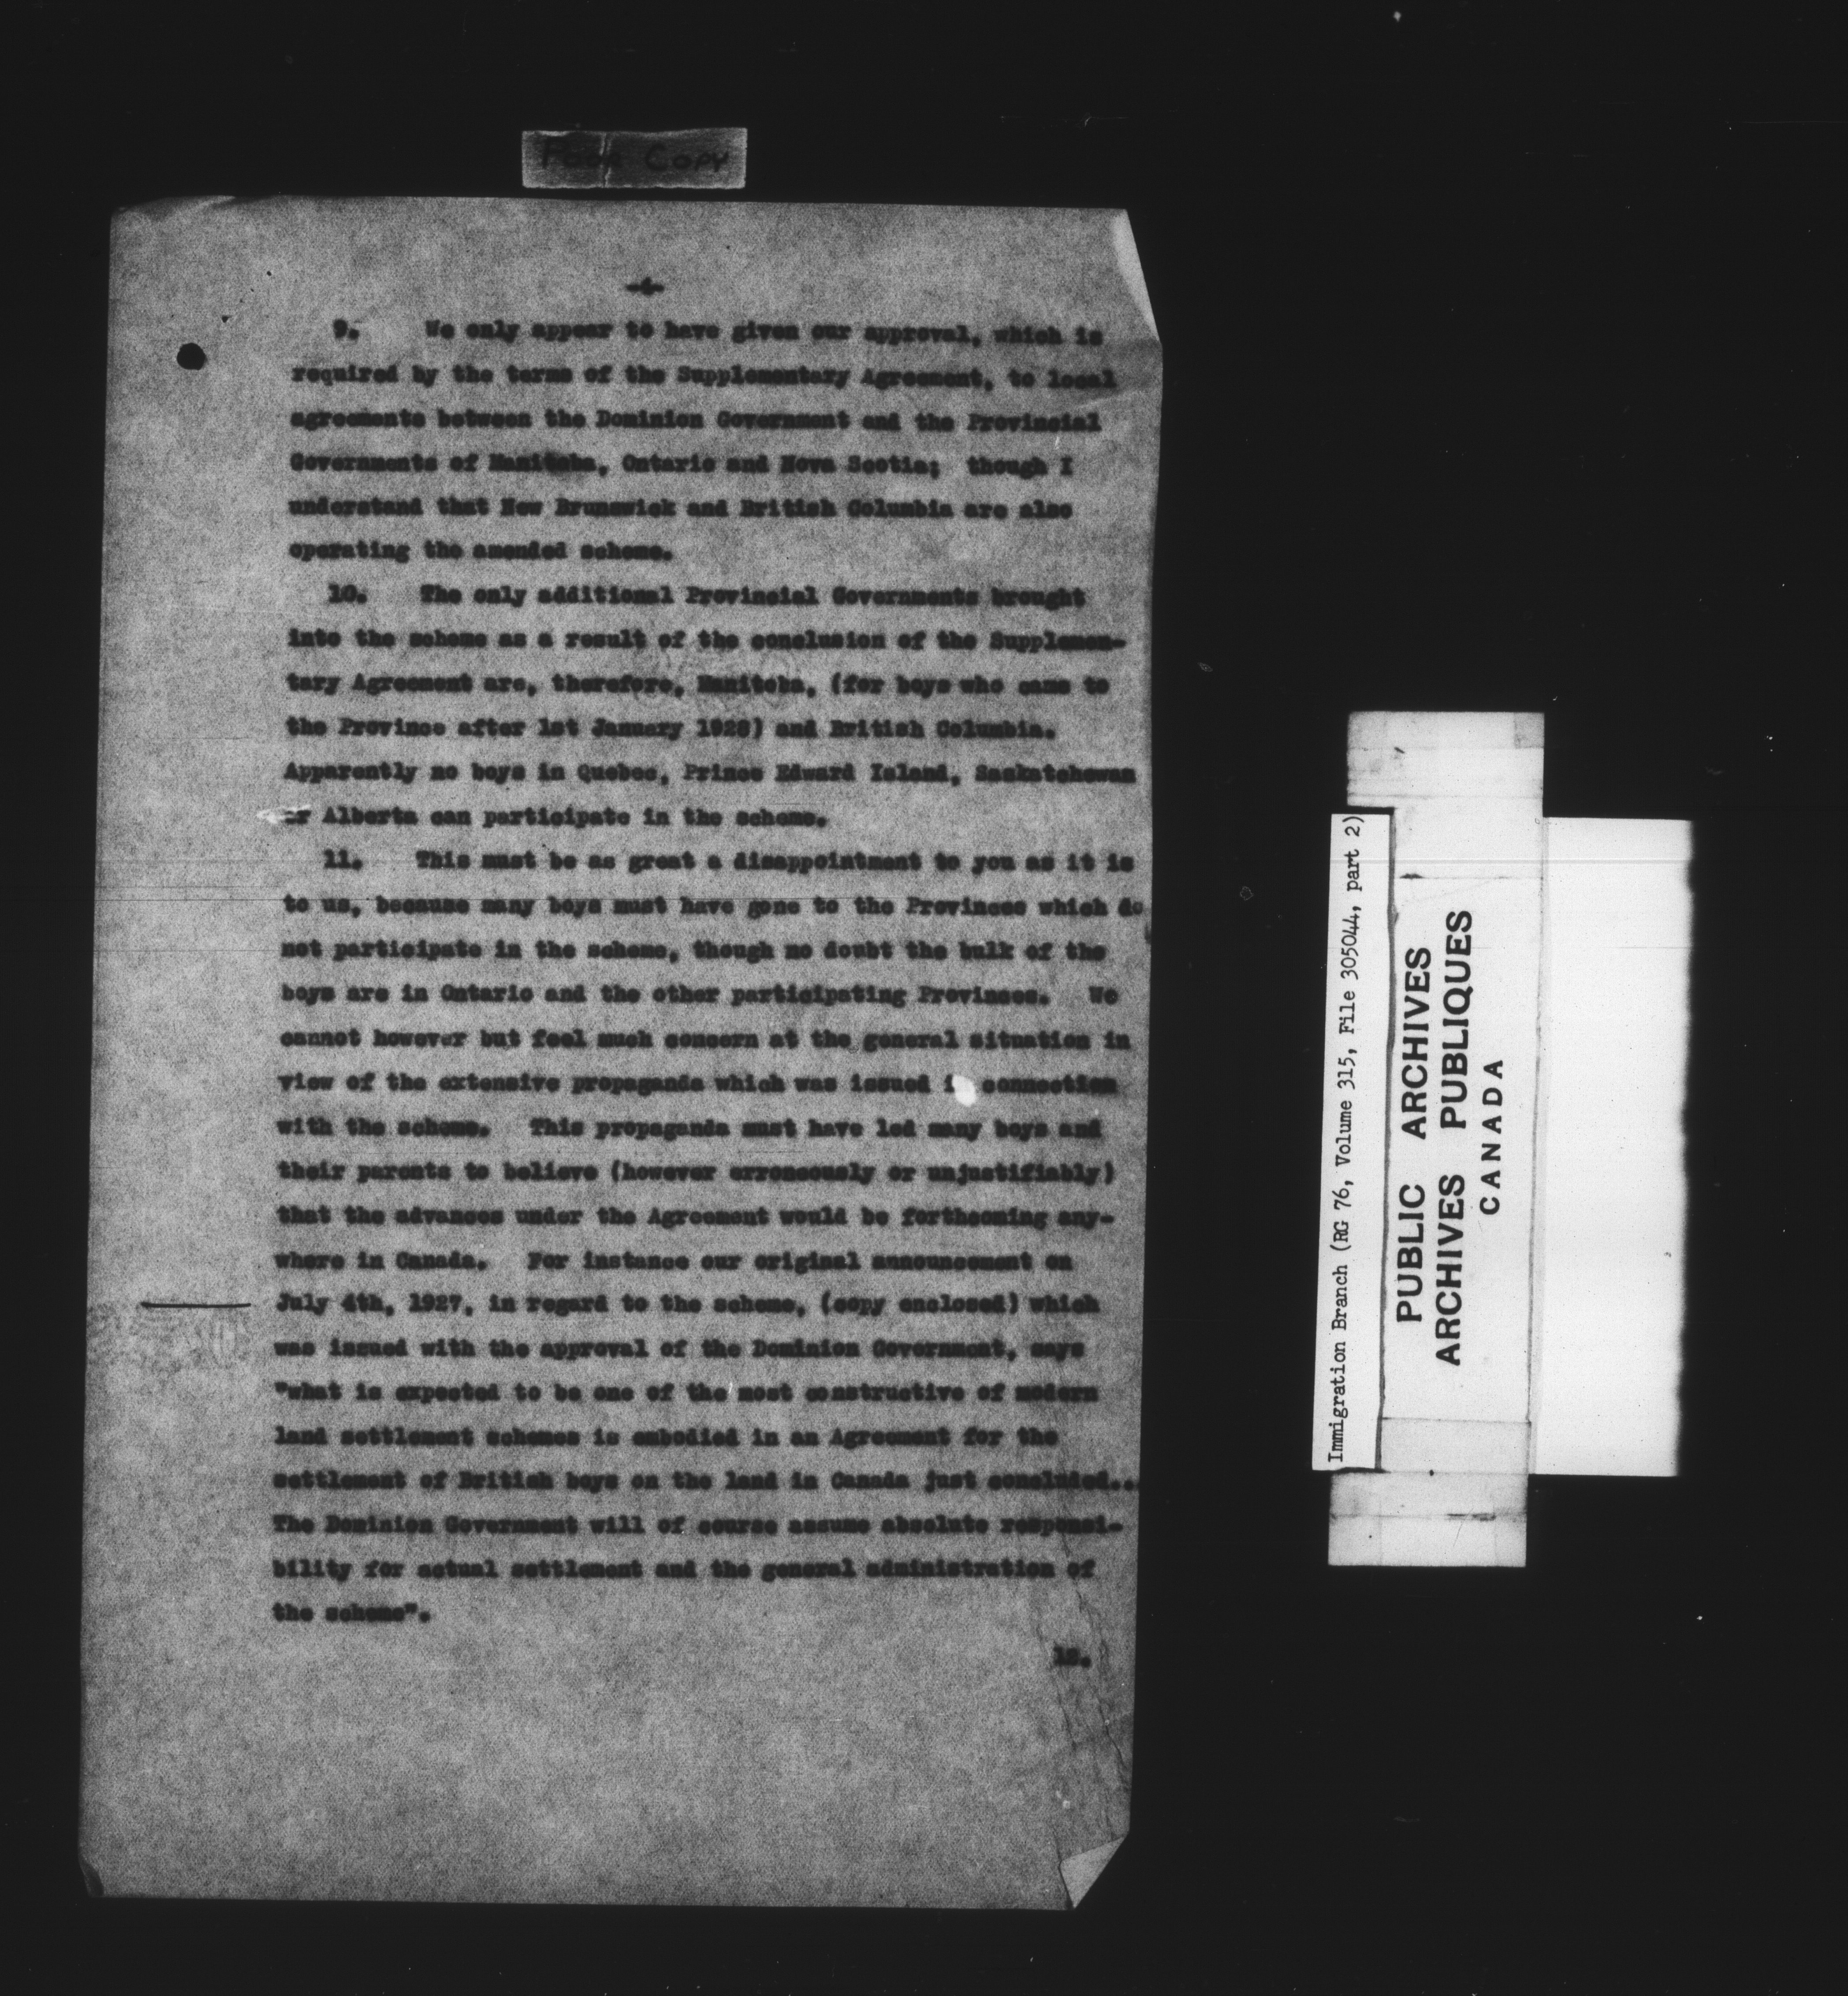 Poor Copy
-4-
9. We only appear to have given our approval, which is
required by the terms of the Supplementary Agreement, to local
agreements between the Dominion Government and the Provincial
Governments of Manitoba, Ontario and Nova Scotia; though I
understand that New Brunswick and British Columbia are also
operating the amended scheme.
10. The only additional Provincial Governments brought
into the scheme as a result of the conclusion of the Supplemen-
tary Agreement are, therefore, Manitoba, (for boys who came to
the Province after 1st January 1928) and British Columbia.
Apparently no boys in Quebec, Prince Edward Island, Saskatchewan
or Alberta can participate in the scheme.
11. This must be as great a disappointment to you as it is
to us, because many boys must have gone to the Provinces which do
not participate in the scheme, though no doubt the bulk of the
boys are in Ontario and the other participating Provinces. We
cannot however but feel much concern at the general situation in
view of the extensive propaganda which was issued in connection
with the scheme. This propaganda must have led many boys and
their parents to believe (however erroneously or unjustifiably)
that the advances under the Agreement would be forthcoming any-
where in Canada. For instance our original announcement on
July 4th, 1927, in regard to the scheme, (copy enclosed) which
was issued with the approval of the Dominion Government, says
"what is expected to be one of the most constructive of modern
land settlement schemes is embodied in an Agreement for the
settlement of British boys on the land in Canada just concluded...
The Dominion Government will of course assume absolute responsi-
bility for actual settlement and the general administration of
the scheme".
12.
Immigration Branch (RG 76, Volume 315, File 305044, part 2)
PUBLIC ARCHIVES
ARCHIVES PUBLIQUES
CANADA